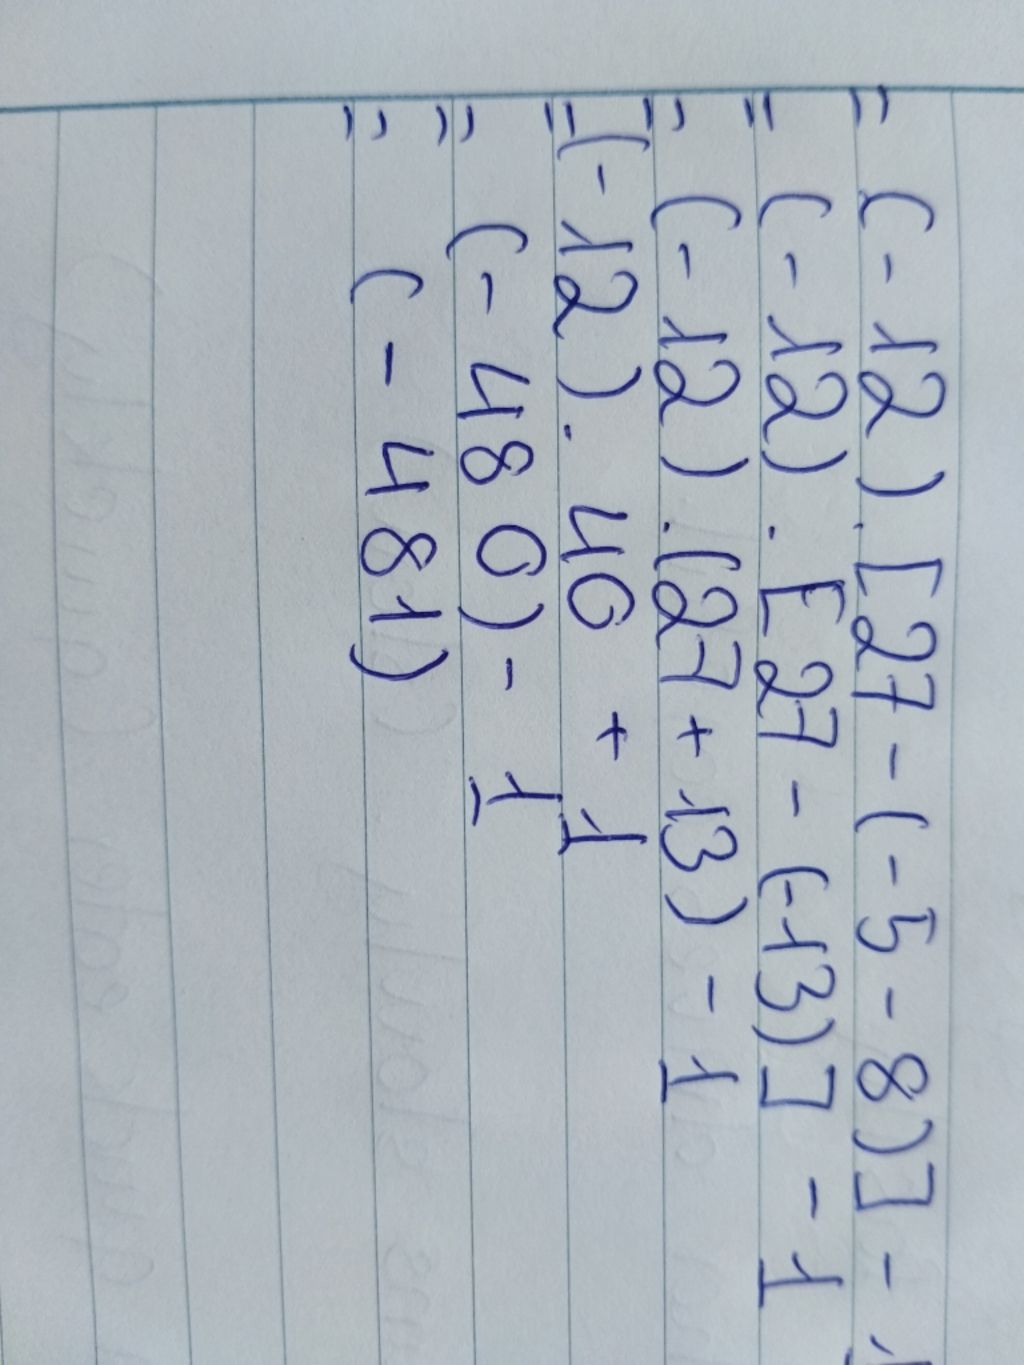 = (-12).[27-(-5-8)]-1
= (-12).[27-(-13)]-1
= (-12).(27+13)-1
= (-12).40+1
= (-480)-1
= (-481)